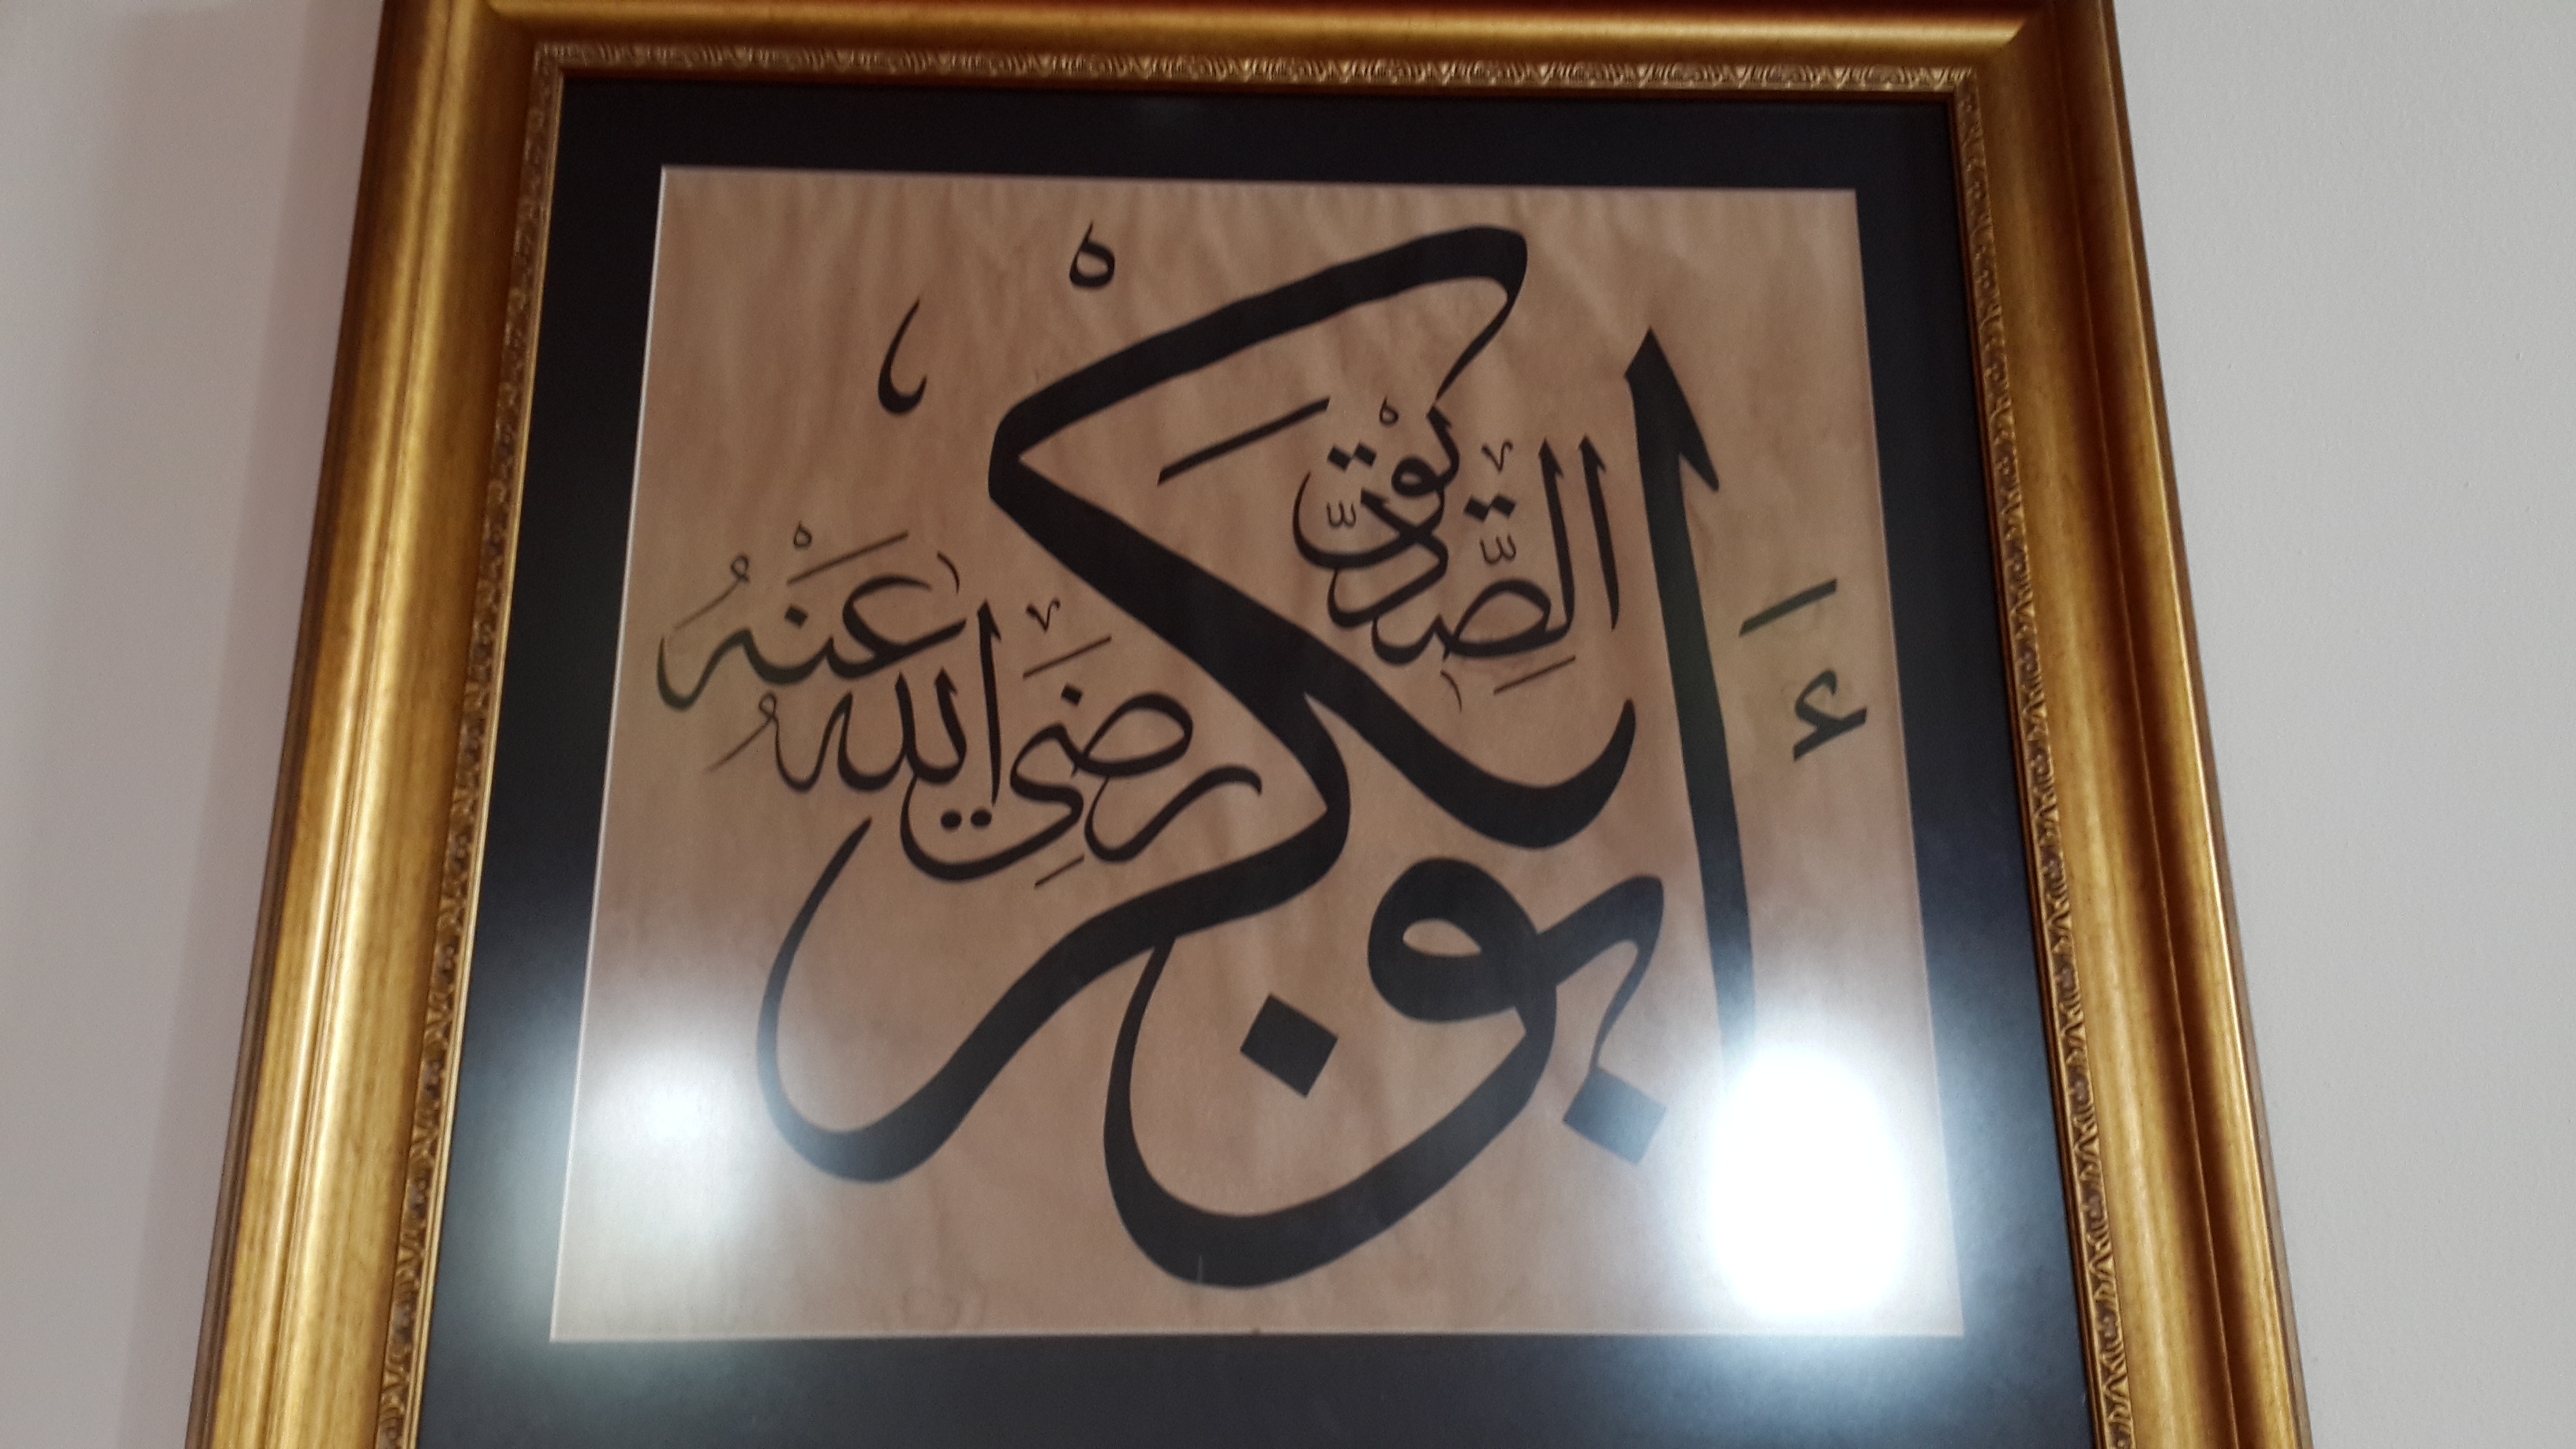 أَبُو بَكْر
الصِّدِّيق
رَضِيَ اللهُ عَنْهُ